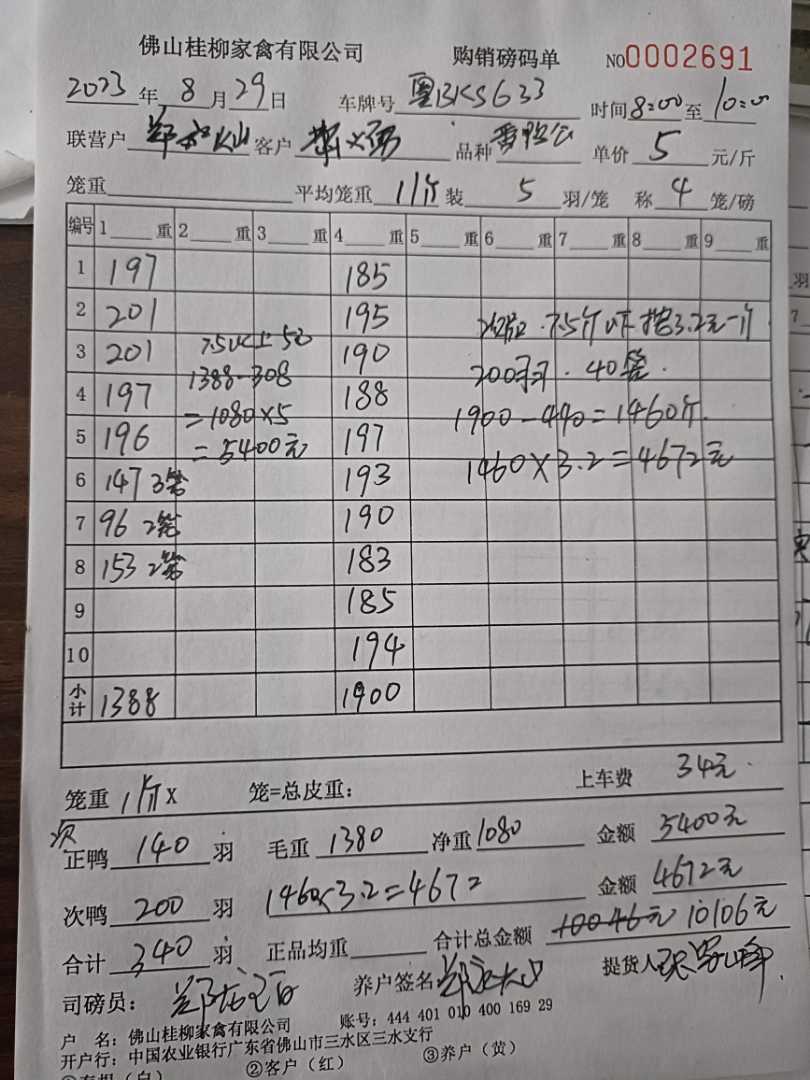 佛山桂柳家禽有限公司 购销磅码单 NO0002691
2023年 8月29日 车牌号 粤BKS633 时间8:00至10:00
联营户 客户 品种 单价 5 元/斤
笼重 平均笼重 11斤 装 5 羽/笼 称 4 笼/磅
编号 1 重 2 重 3 重 4 重 5 重 6 重 7 重 8 重 9 重
1 197 185
2 201 195 7.5斤以下 3.2元一斤
3 201 7.5以上 5元 190 200羽. 40笼.
4 197 1388-308 188 1900-440=1460斤.
5 196 =1080×5 197 1460×3.2=4672元
=5400元
6 147 3笼 193
7 96 2笼 190
8 153 2笼 183
9 185
10 194
小计 1388 1900
笼重 11斤× 笼=总皮重: 上车费 34元.
次
正鸭 140 羽 毛重 1380 净重 1080 金额 5400元
次鸭 200 羽 1460×3.2=4672 金额 4672元
合计 340 羽 正品均重 合计总金额 10046元 10106元
司磅员: 养户签名 提货人
户 名: 佛山桂柳家禽有限公司 账号: 444 401 010 400 169 29
开户行: 中国农业银行广东省佛山市三水区三水支行
①存根(白) ②客户(红) ③养户(黄)